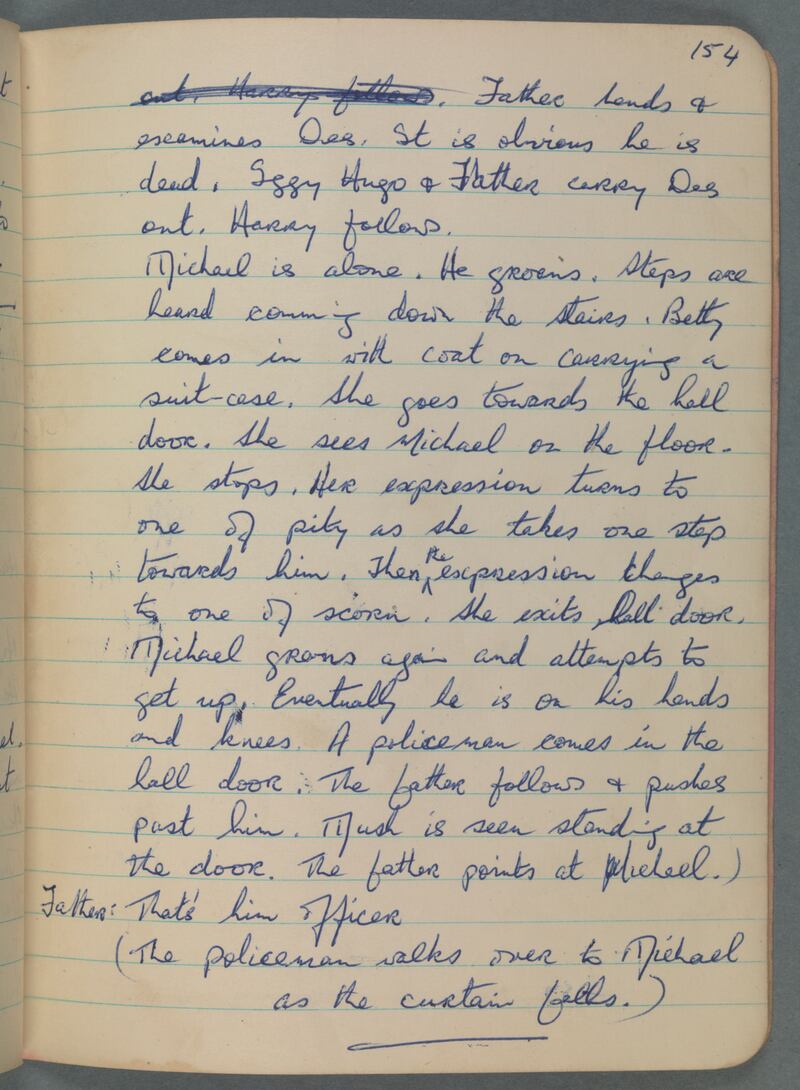 154
out. Harry follows. Father bends &
examines Des. It is obvious he is
dead. Iggy Hugo & Father carry Des
out. Harry follows.
Michael is alone. He groans. Steps are
heard comming down the stairs. Betty
comes in with coat on carrying a
suit-case. She goes towards the hall
door. She sees Michael on the floor.
She stops. Her expression turns to
one of pity as she takes one step
towards him. Then the expression changes
to one of scorn. She exits hall door.
Michael groans again and attempts to
get up. Eventually he is on his hands
and knees. A policeman comes in the
hall door. The father follows & pushes
past him. Mush is seen standing at
the door. The father points at Michael.)
Father: That's him officer
(The policeman walks over to Michael
as the curtain falls.)